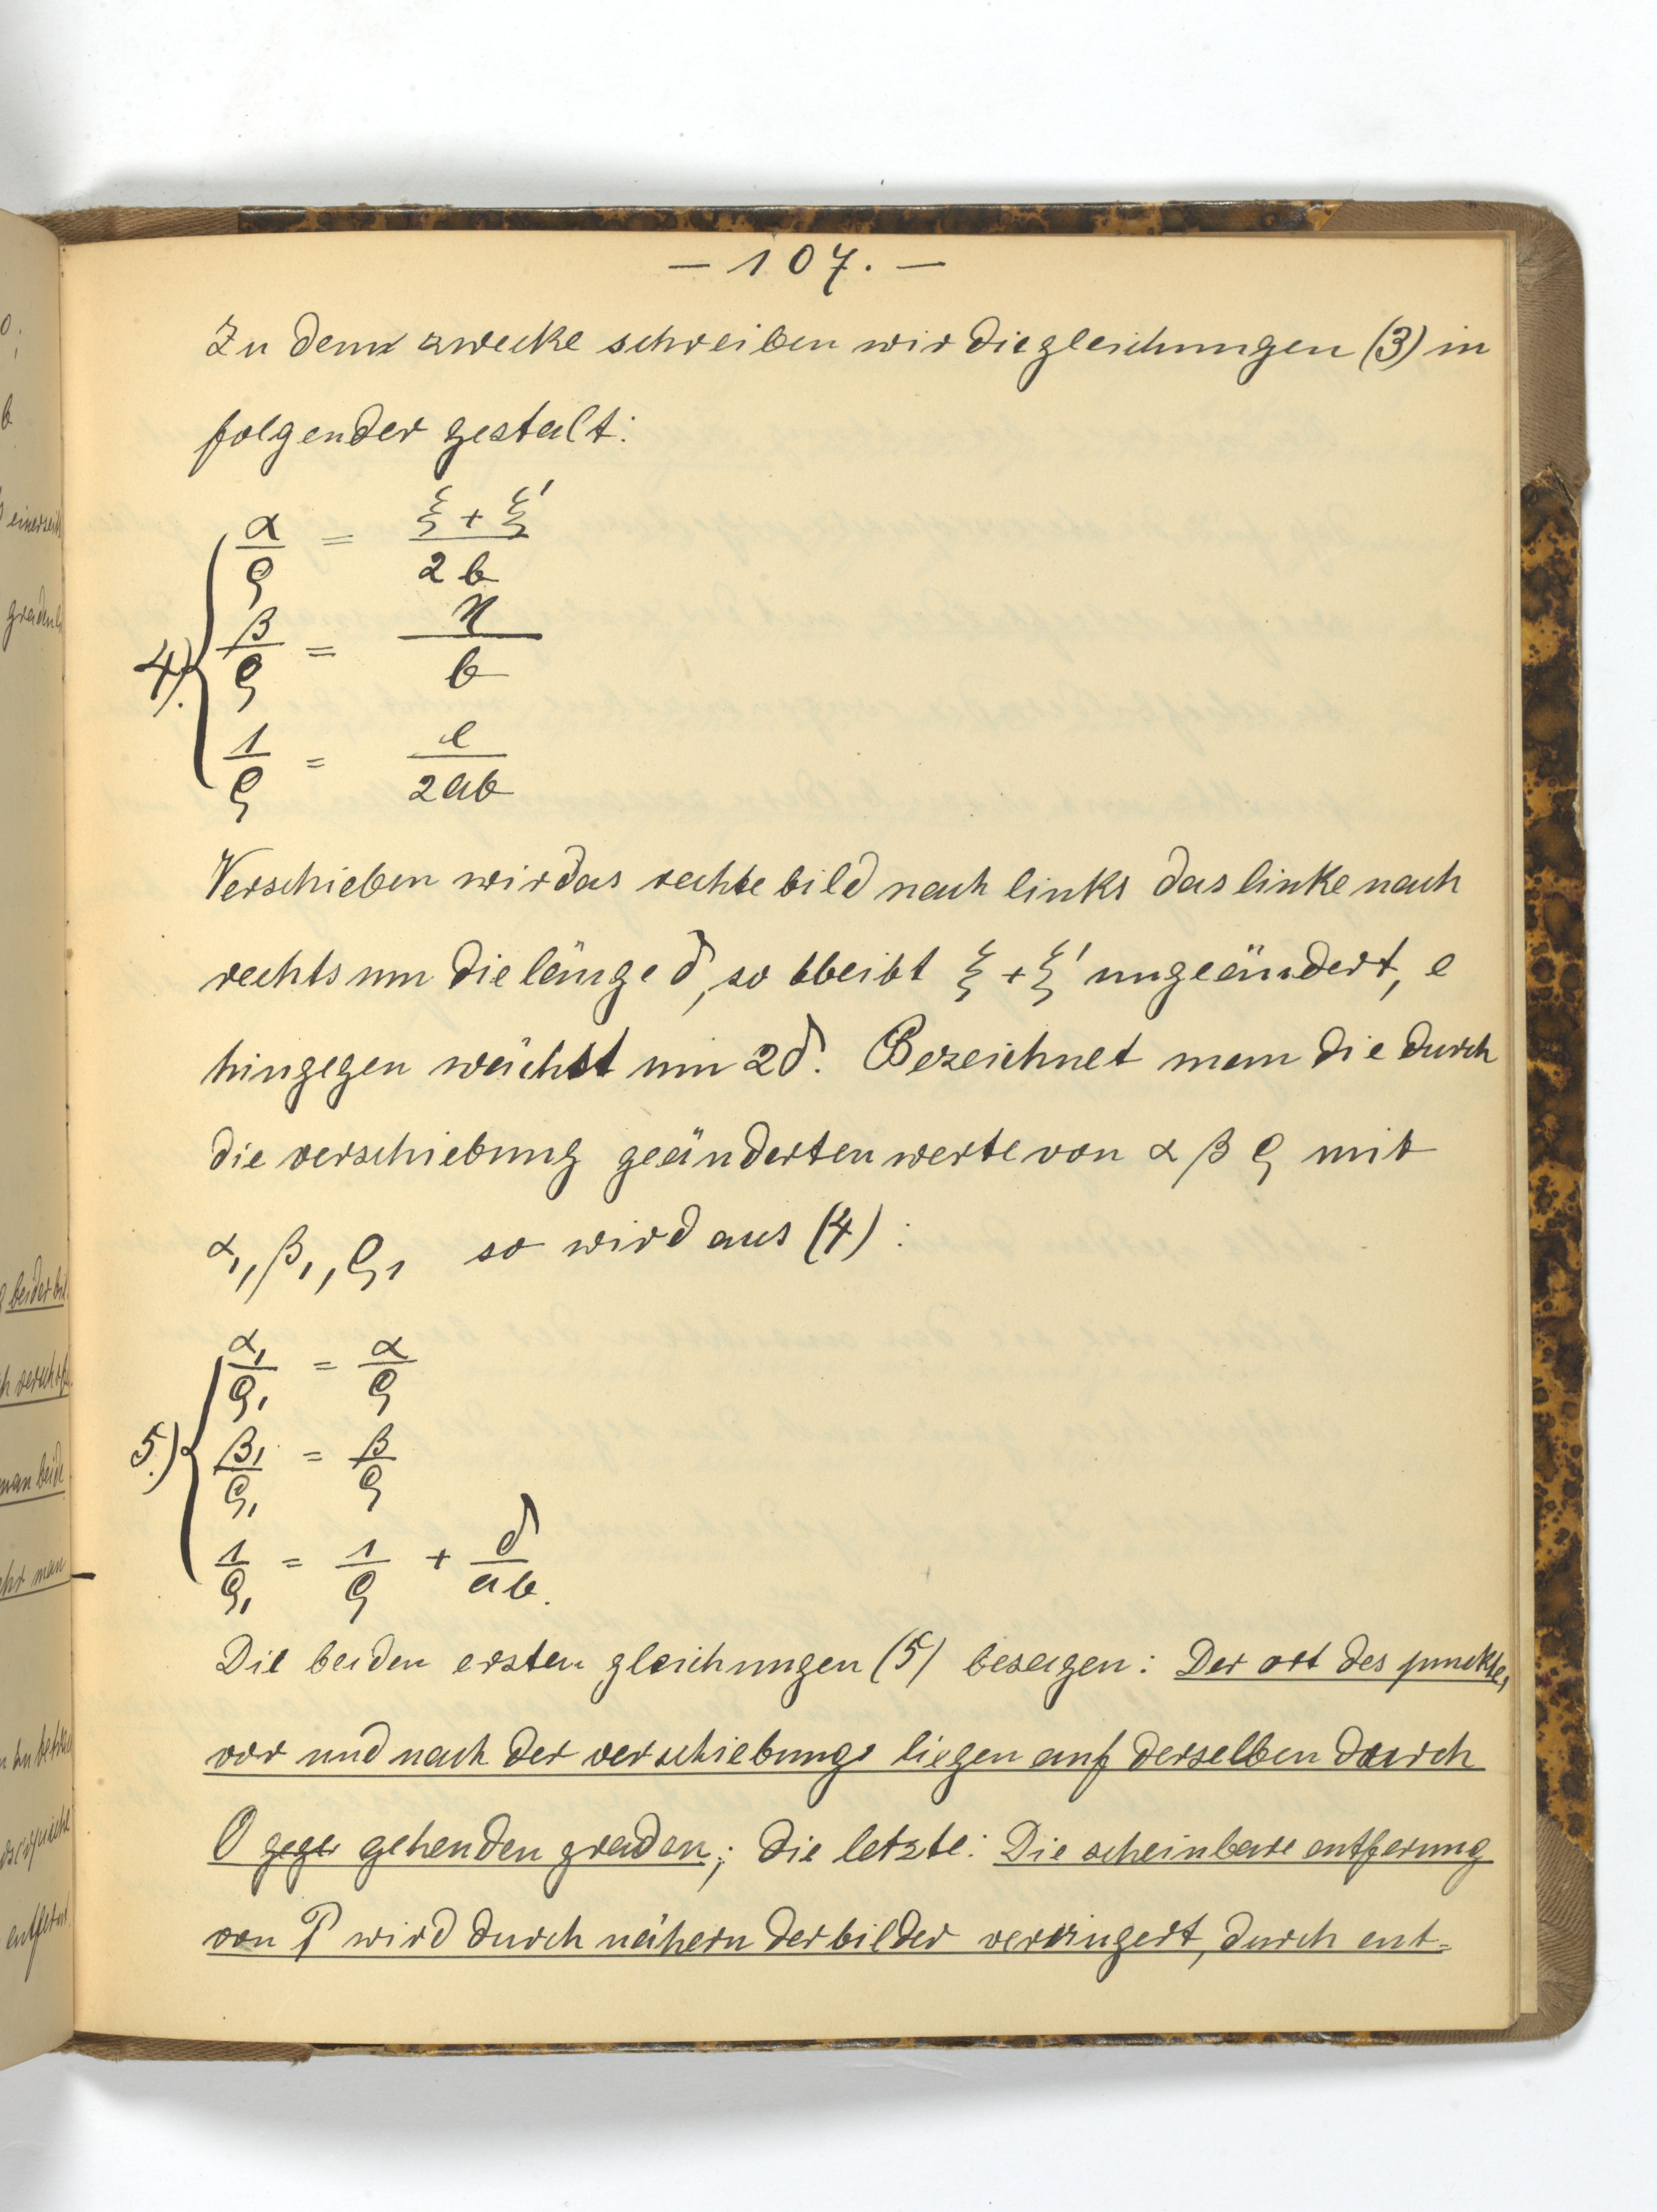 — 107. —
Zu dem zwecke schreiben wir die gleichungen (3) in
folgender gestalt:
α/ϱ = (ξ + ξ')/2b
4). β/ϱ = η/b
1/ϱ = e/2ab
Verschieben wir das rechte bild nach links das linke nach
rechts um die länge δ, so bleibt ξ + ξ' ungeändert, e
hingegen wächst um 2δ. Bezeichnet man die durch
die verschiebung geänderten werte von α β ϱ mit
α₁, β₁, ϱ₁ so wird aus (4):
α₁/ϱ₁ = α/ϱ
5.) β₁/ϱ₁ = β/ϱ
1/ϱ₁ = 1/ϱ + δ/ab.
Die beiden ersten gleichungen (5) besagen: Der ort des punckte,
vor und nach der verschiebung liegen auf derselben durch
O gege gehenden graden; die letzte: Die scheinbare entferung
von P wird durch nähern der bilder verringert, durch ent-